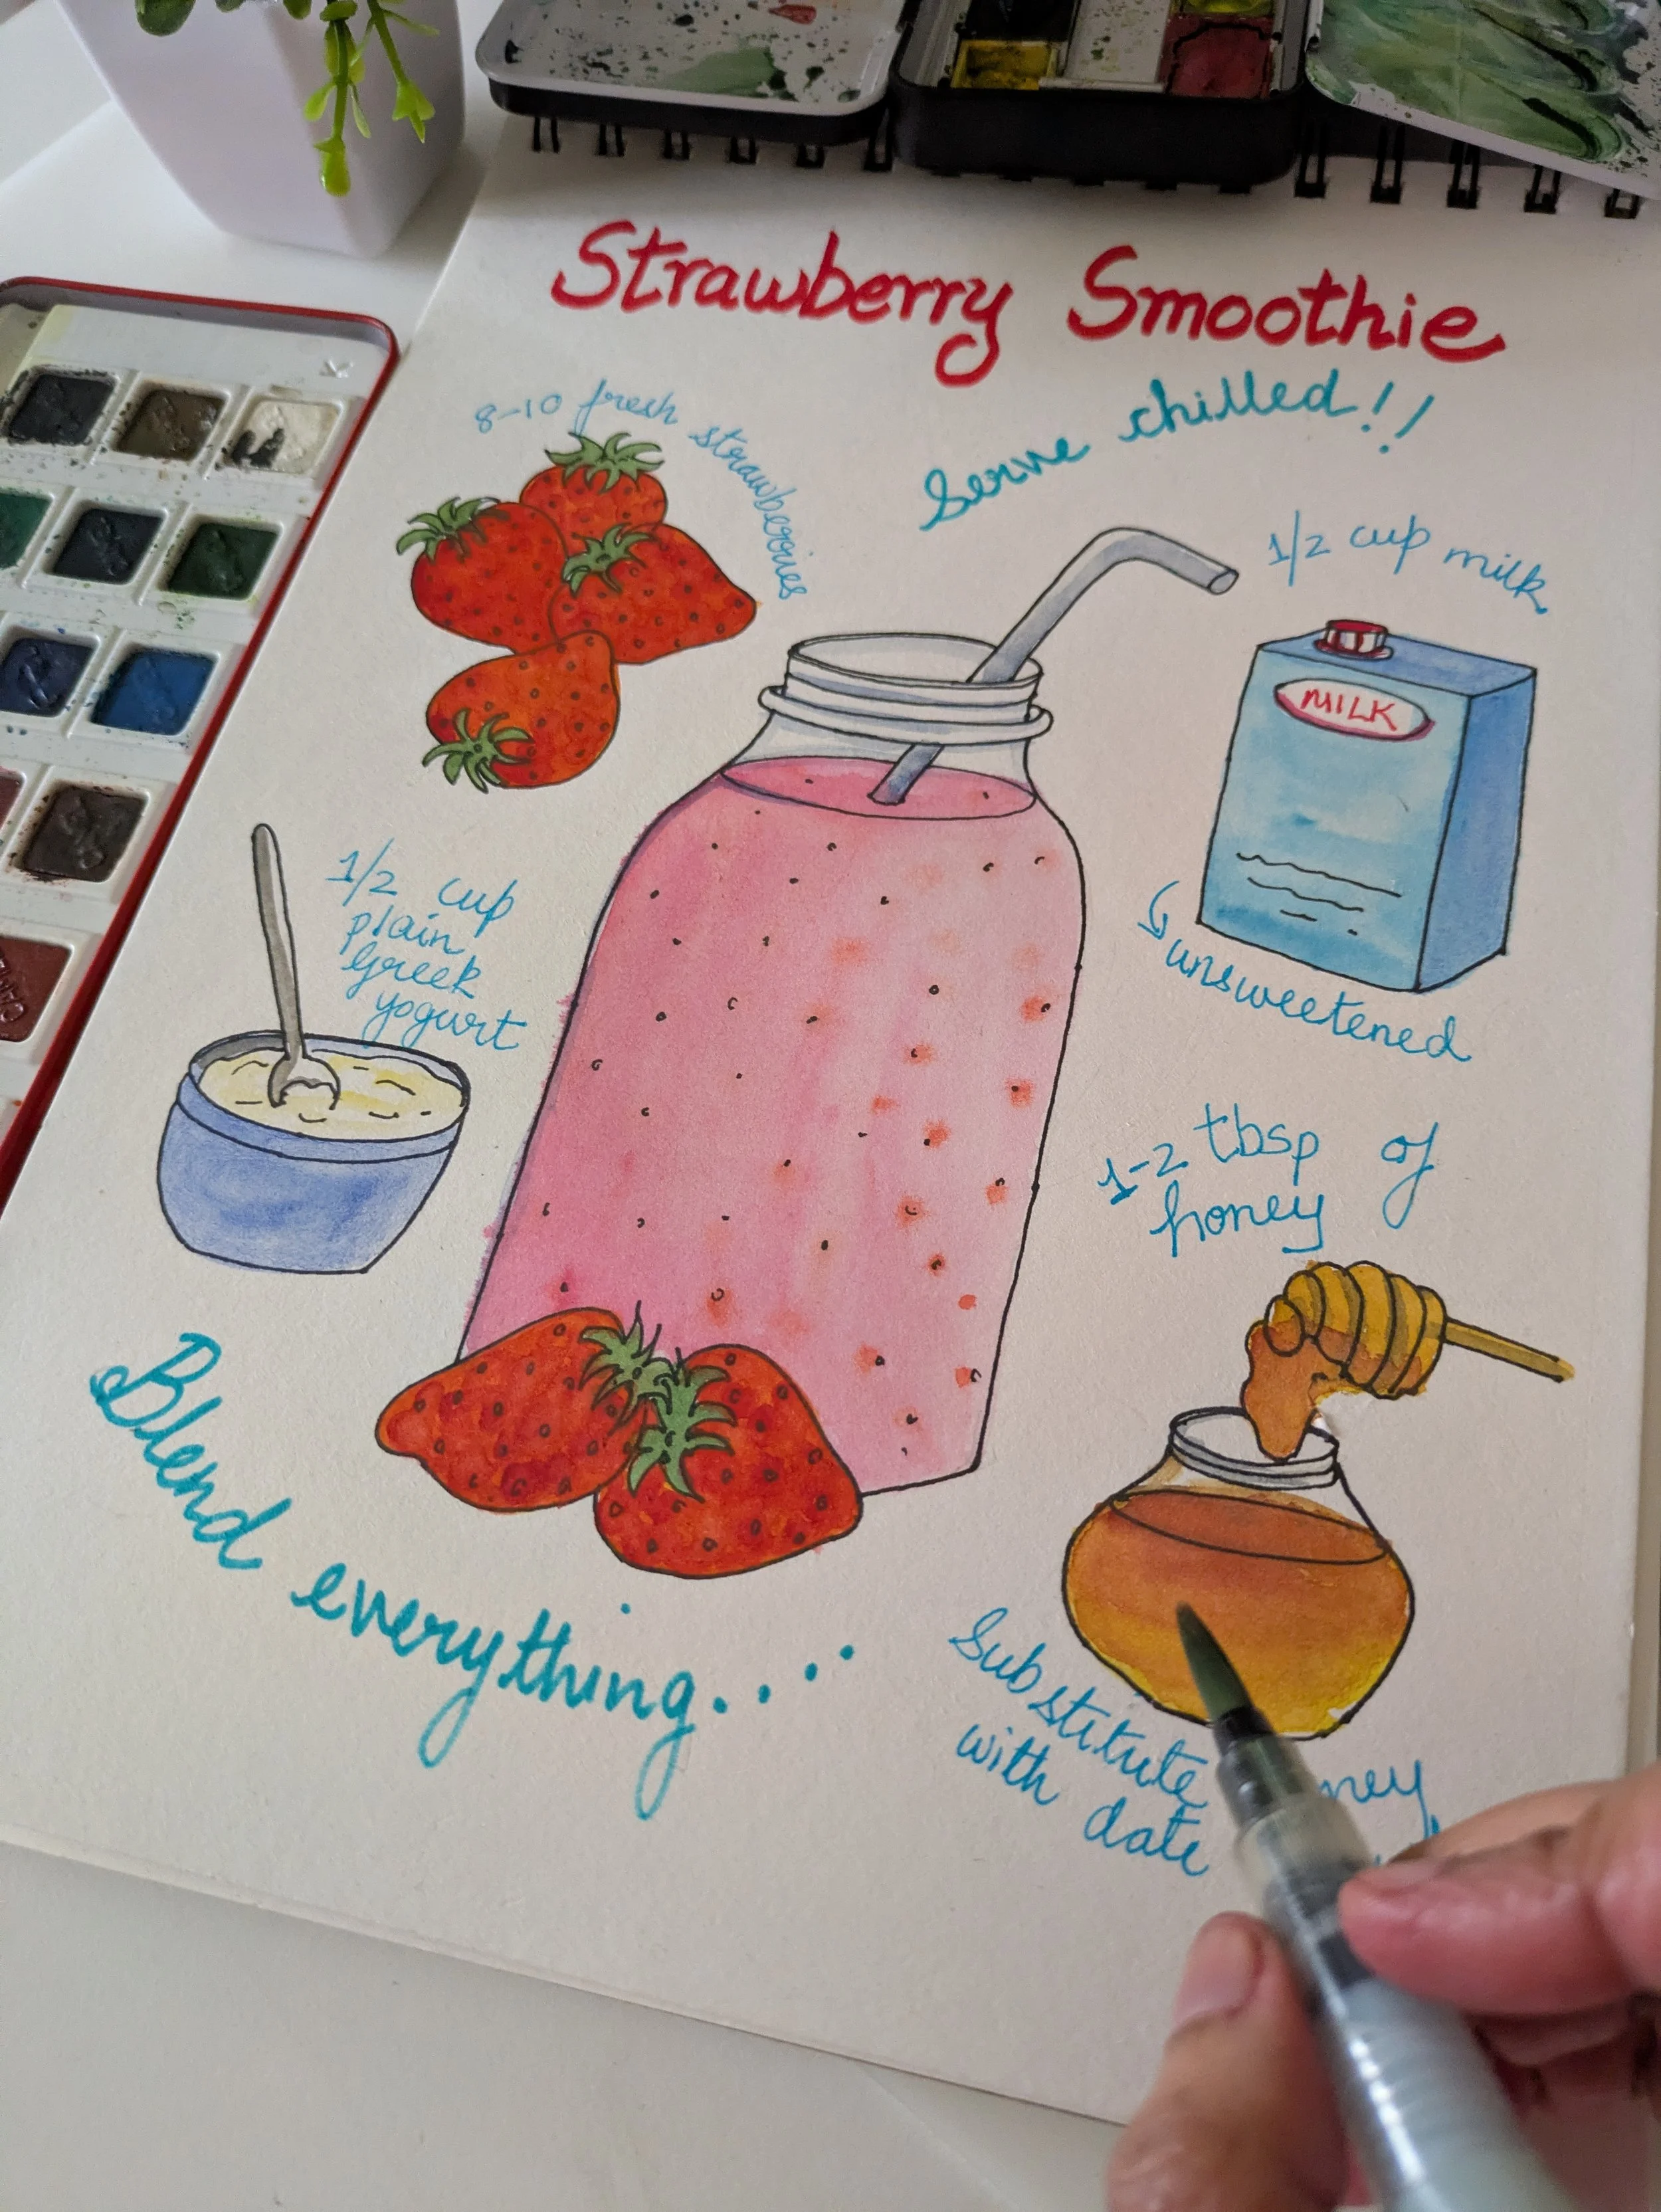 Strawberry Smoothie
Serve chilled!!
8-10 fresh strawberries
1/2 cup milk
MILK
unsweetened
1/2 cup
plain
Greek
yogurt
1-2 tbsp of
honey
Blend everything.....
Substitute
with date